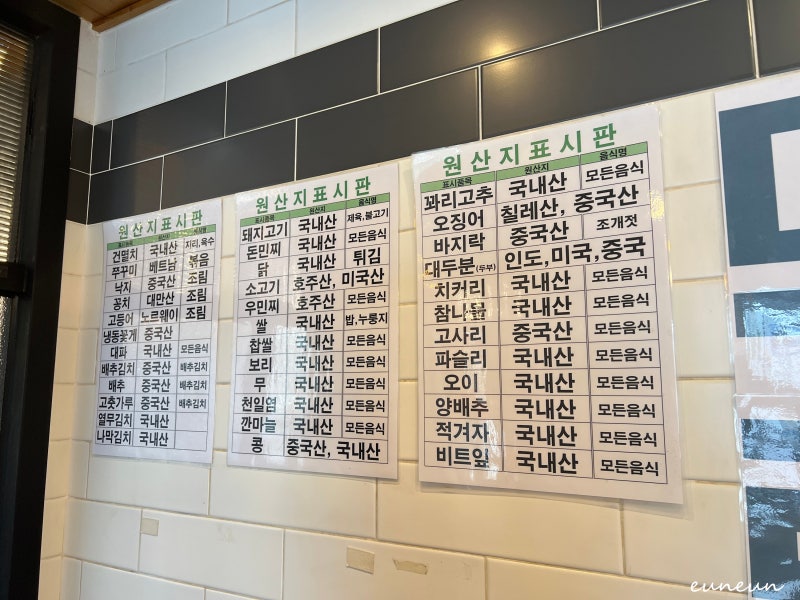 원산지표시판
표시품목 원산지 음식명
건멸치 국내산 지리,육수
쭈꾸미 베트남 볶음
낙지 중국산 조림
꽁치 대만산 조림
고등어 노르웨이 조림
냉동꽃게 중국산
대파 국내산 모든음식
배추김치 중국산 배추김치
배추 중국산 배추김치
고춧가루 중국산 배추김치
열무김치 국내산
나박김치 국내산
원산지표시판
표시품목 원산지 음식명
돼지고기 국내산 제육,불고기
돈민찌 국내산 모든음식
닭 국내산 튀김
소고기 호주산, 미국산
우민찌 호주산 모든음식
쌀 국내산 밥,누룽지
찹쌀 국내산 모든음식
보리 국내산 모든음식
무 국내산 모든음식
천일염 국내산 모든음식
깐마늘 국내산 모든음식
콩 중국산, 국내산
원산지표시판
표시품목 원산지 음식명
꽈리고추 국내산 모든음식
오징어 칠레산, 중국산
바지락 중국산 조개젓
대두분(두부) 인도,미국,중국
치커리 국내산 모든음식
참나물 국내산 모든음식
고사리 중국산 모든음식
파슬리 국내산 모든음식
오이 국내산 모든음식
양배추 국내산 모든음식
적겨자 국내산 모든음식
비트잎 국내산 모든음식
euneun